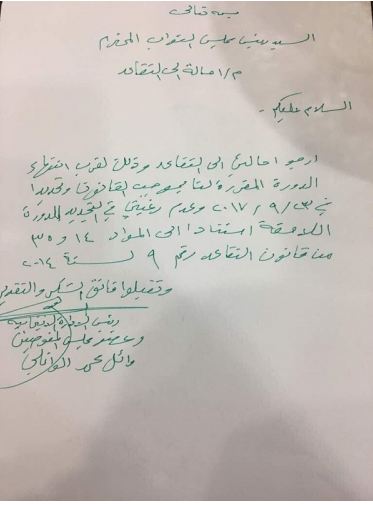 بسمه تعالى
السيد رئيس مجلس النواب المحترم
م/ احالة الى التقاعد
السلام عليكم -
ارجو احالتي الى التقاعد وذلك لقرب انتهاء
الدورة المقررة لنا بموجب القانون وتحديدا
في ٢٠١٧/٩/٢٠ وعدم رغبتي في التجديد للدورة
اللاحقة استنادا الى المواد ١٤ و ٣٥
من قانون التقاعد رقم ٩ لسنة ٢٠١٤
وتقبلوا فائق الشكر والتقدير
رئيس الادارة الانتخابية
وعضو مجلس المفوضين
وائل محمد الوائلي